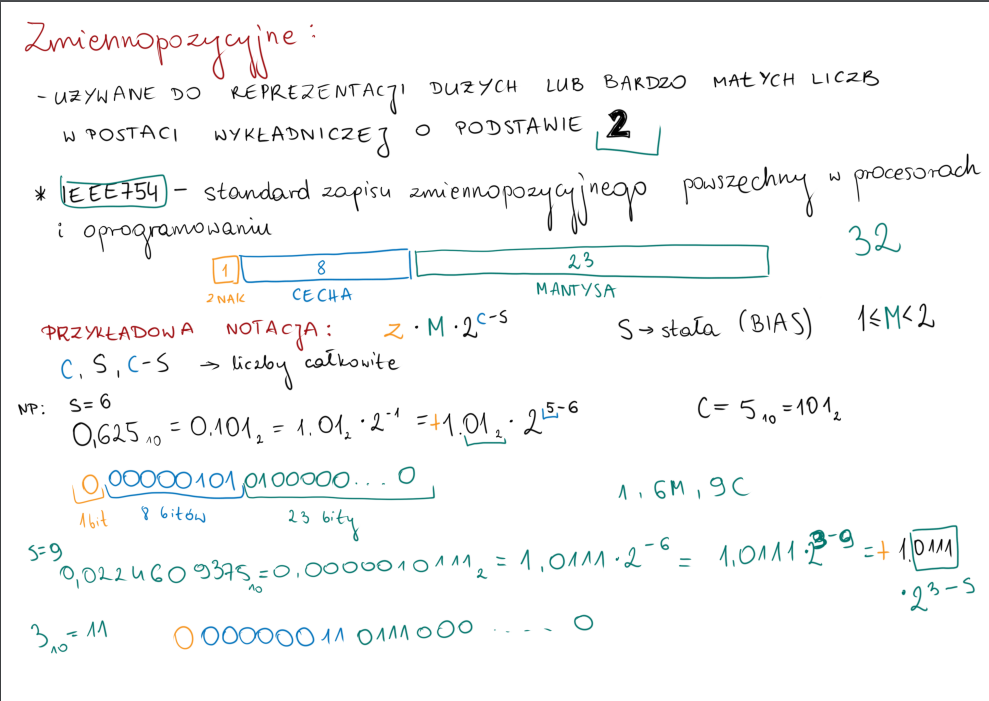 Zmiennopozycyjne:
- UŻYWANE DO REPREZENTACJI DUŻYCH LUB BARDZO MAŁYCH LICZB
W POSTACI WYKŁADNICZEJ O PODSTAWIE 2
* IEEE754 – standard zapisu zmiennopozycyjnego powszechny w procesorach
i oprogramowaniu
32
1 8 23
ZNAK CECHA MANTYSA
PRZYKŁADOWA NOTACJA: Z · M · 2^(C-S) S → stała (BIAS) 1≤M<2
C, S, C-S → liczby całkowite
NP: S=6
0,625₁₀ = 0.101₂ = 1.01₂ · 2⁻¹ = +1.01₂ · 2⁵⁻⁶ C = 5₁₀ = 101₂
0 00000101 0100000... 0
1bit 8 bitów 23 bity
1, 6M, 9C
S=9
0,0224609375₁₀ = 0,00000010111₂ = 1,0111 · 2⁻⁶ = 1,0111 · 2³⁻⁹ = + 1,0111
· 2^(3-S)
3₁₀ = 11 0 00000011 0111000 ..... 0